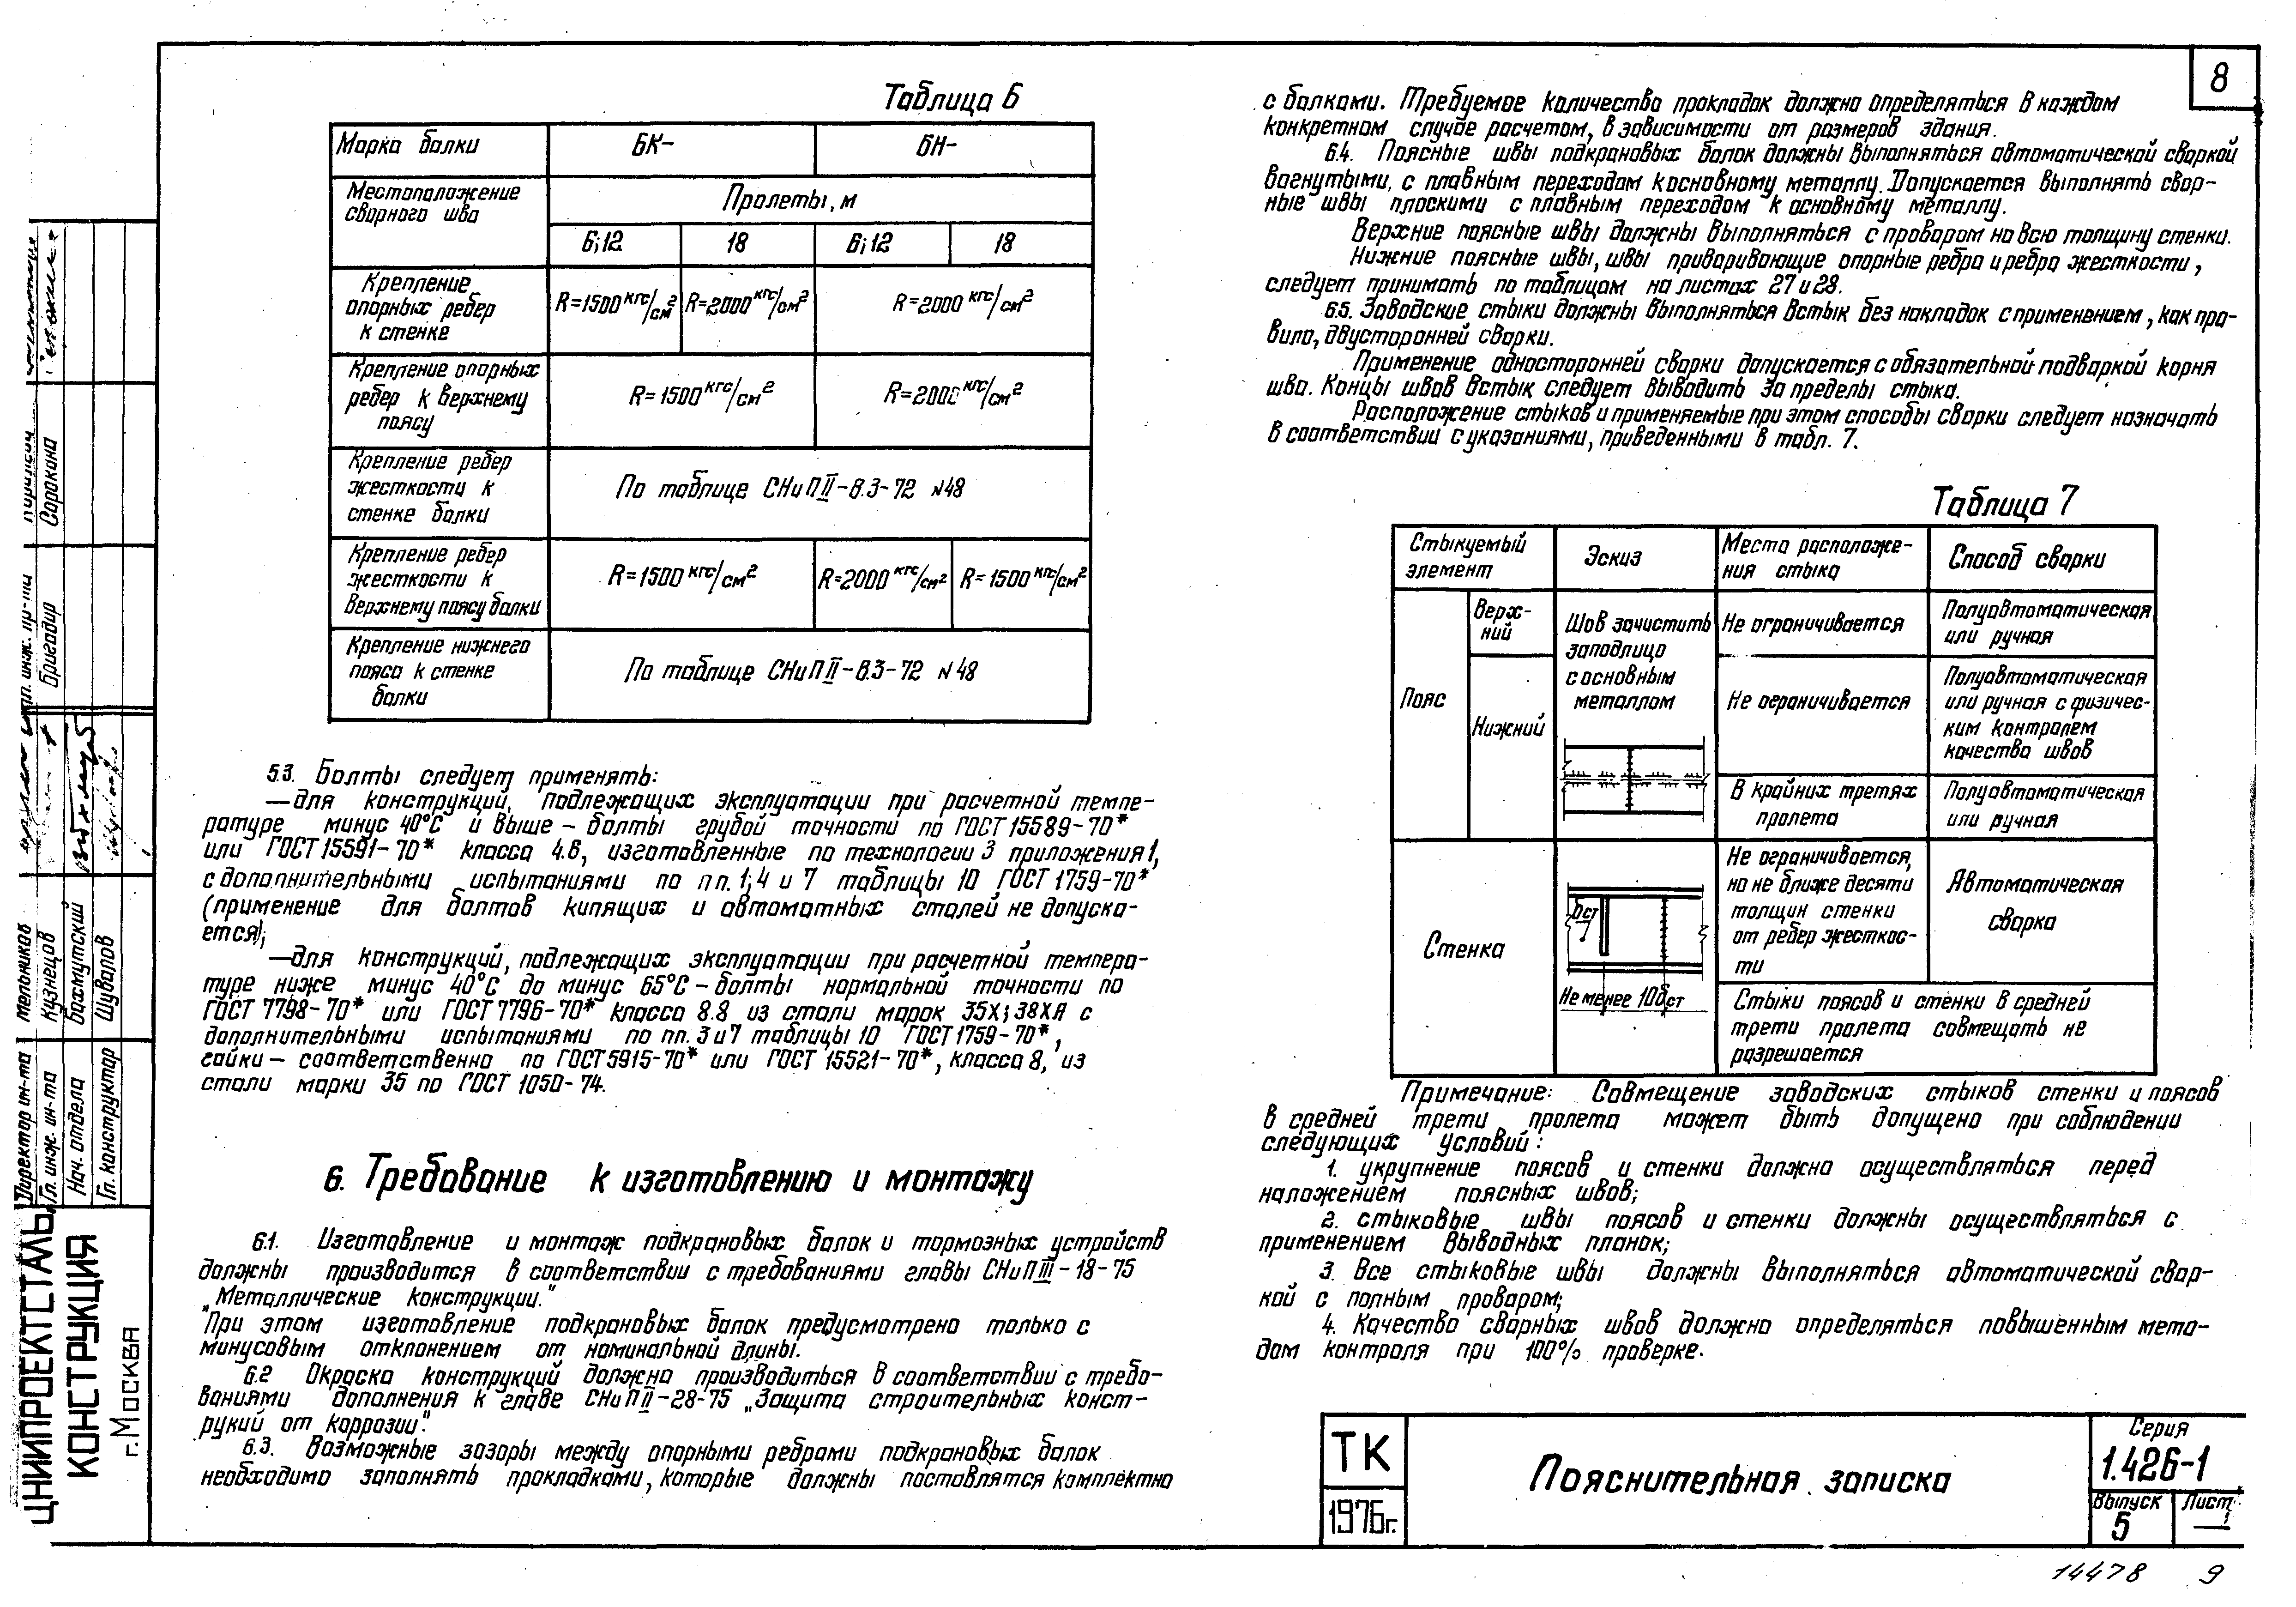 8
Таблица 6
Марка балки БК- БН-
Местоположение сварного шва Пролеты, м
6;12 18 6;12 18
Крепление опорных ребер к стенке R=1500 кгс/см² R=2000 кгс/см² R=2000 кгс/см²
Крепление опорных ребер к верхнему поясу R=1500 кгс/см² R=2000 кгс/см²
Крепление ребер жесткости к стенке балки По таблице СНиП II-В.3-72 №48
Крепление ребер жесткости к верхнему поясу балки R=1500 кгс/см² R=2000 кгс/см² R=1500 кгс/см²
Крепление нижнего пояса к стенке балки По таблице СНиП II-В.3-72 №48
5.3. Болты следует применять:
—для конструкций, подлежащих эксплуатации при расчетной темпе-
ратуре минус 40°С и выше – болты грубой точности по ГОСТ 15589-70*
или ГОСТ 15591-70* класса 4.6, изготовленные по технологии 3 приложения 1,
с дополнительными испытаниями по пп. 1;4 и 7 таблицы 10 ГОСТ 1759-70*
(применение для болтов кипящих и автоматных сталей не допуска-
ется);
—для конструкций, подлежащих эксплуатации при расчетной темпера-
туре ниже минус 40°С до минус 65°С – болты нормальной точности по
ГОСТ 7798-70* или ГОСТ 7796-70* класса 8.8 из стали марок 35Х; 38ХА с
дополнительными испытаниями по пп. 3 и 7 таблицы 10 ГОСТ 1759-70*,
гайки – соответственно по ГОСТ 5915-70* или ГОСТ 15521-70*, класса 8, из
стали марки 35 по ГОСТ 1050-74.
6. Требование к изготовлению и монтажу
6.1. Изготовление и монтаж подкрановых балок и тормозных устройств
должны производится в соответствии с требованиями главы СНиП III-18-75
„Металлические конструкции."
При этом изготовление подкрановых балок предусмотрено только с
минусовым отклонением от номинальной длины.
6.2 Окраска конструкций должна производиться в соответствии с требо-
ваниями дополнения к главе СНиП II-28-75 „Защита строительных конст-
рукий от коррозии".
6.3. Возможные зазоры между опорными ребрами подкрановых балок
необходимо заполнять прокладками, которые должны поставлятся комплектно
с балками. Требуемое количество прокладок должно определяться в каждом
конкретном случае расчетом, в зависимости от размеров здания.
6.4. Поясные швы подкрановых балок должны выполняться автоматической сваркой
вогнутыми, с плавным переходом к основному металлу. Допускается выполнять свар-
ные швы плоскими с плавным переходом к основному металлу.
Верхние поясные швы должны выполняться с проваром на всю толщину стенки.
Нижние поясные швы, швы приваривающие опорные ребра и ребра жесткости,
следует принимать по таблицам на листах 27 и 28.
6.5. Заводские стыки должны выполняться встык без накладок с применением, как пра-
вило, двусторонней сварки.
Применение односторонней сварки допускается с обязательной подваркой корня
шва. Концы швов встык следует выводить за пределы стыка.
Расположение стыков и применяемые при этом способы сварки следует назначать
в соответствии с указаниями, приведенными в табл. 7.
Таблица 7
Стыкуемый элемент Эскиз Место расположе- ния стыка Способ сварки
Пояс Верх- ний Шов зачистить заподлицо с основным металлом Не ограничивается Полуавтоматическая или ручная
Нижний Не ограничивается Полуавтоматическая или ручная с физичес- ким контролем качества швов
В крайних третях пролета Полуавтоматическая или ручная
Стенка Не ограничивается, но не ближе десяти толщин стенки от ребер жесткос- ти Автоматическая сварка
δст
Не менее 10δст
Стыки поясов и стенки в средней трети пролета совмещать не разрешается
Примечание: Совмещение заводских стыков стенки и поясов
в средней трети пролета может быть допущено при соблюдении
следующих условий:
1. укрупнение поясов и стенки должно осуществляться перед
наложением поясных швов;
2. стыковые швы поясов и стенки должны осуществляться с
применением выводных планок;
3. Все стыковые швы должны выполняться автоматической свар-
кой с полным проваром;
4. Качество сварных швов должно определяться повышенным мето-
дом контроля при 100% проверке.
ТК
1976г.
Пояснительная записка
Серия
1.426-1
Выпуск 5
Лист
14478 9
ЦНИИПРОЕКТСТАЛЬ
КОНСТРУКЦИЯ
г. Москва
Директор ин-та Мельников
Гл. инж. ин-та Кузнецов
Нач. отдела Бахмутский
Гл. конструктор Шувалов
Гл. инж. пр-та
Бригадир Сорокина